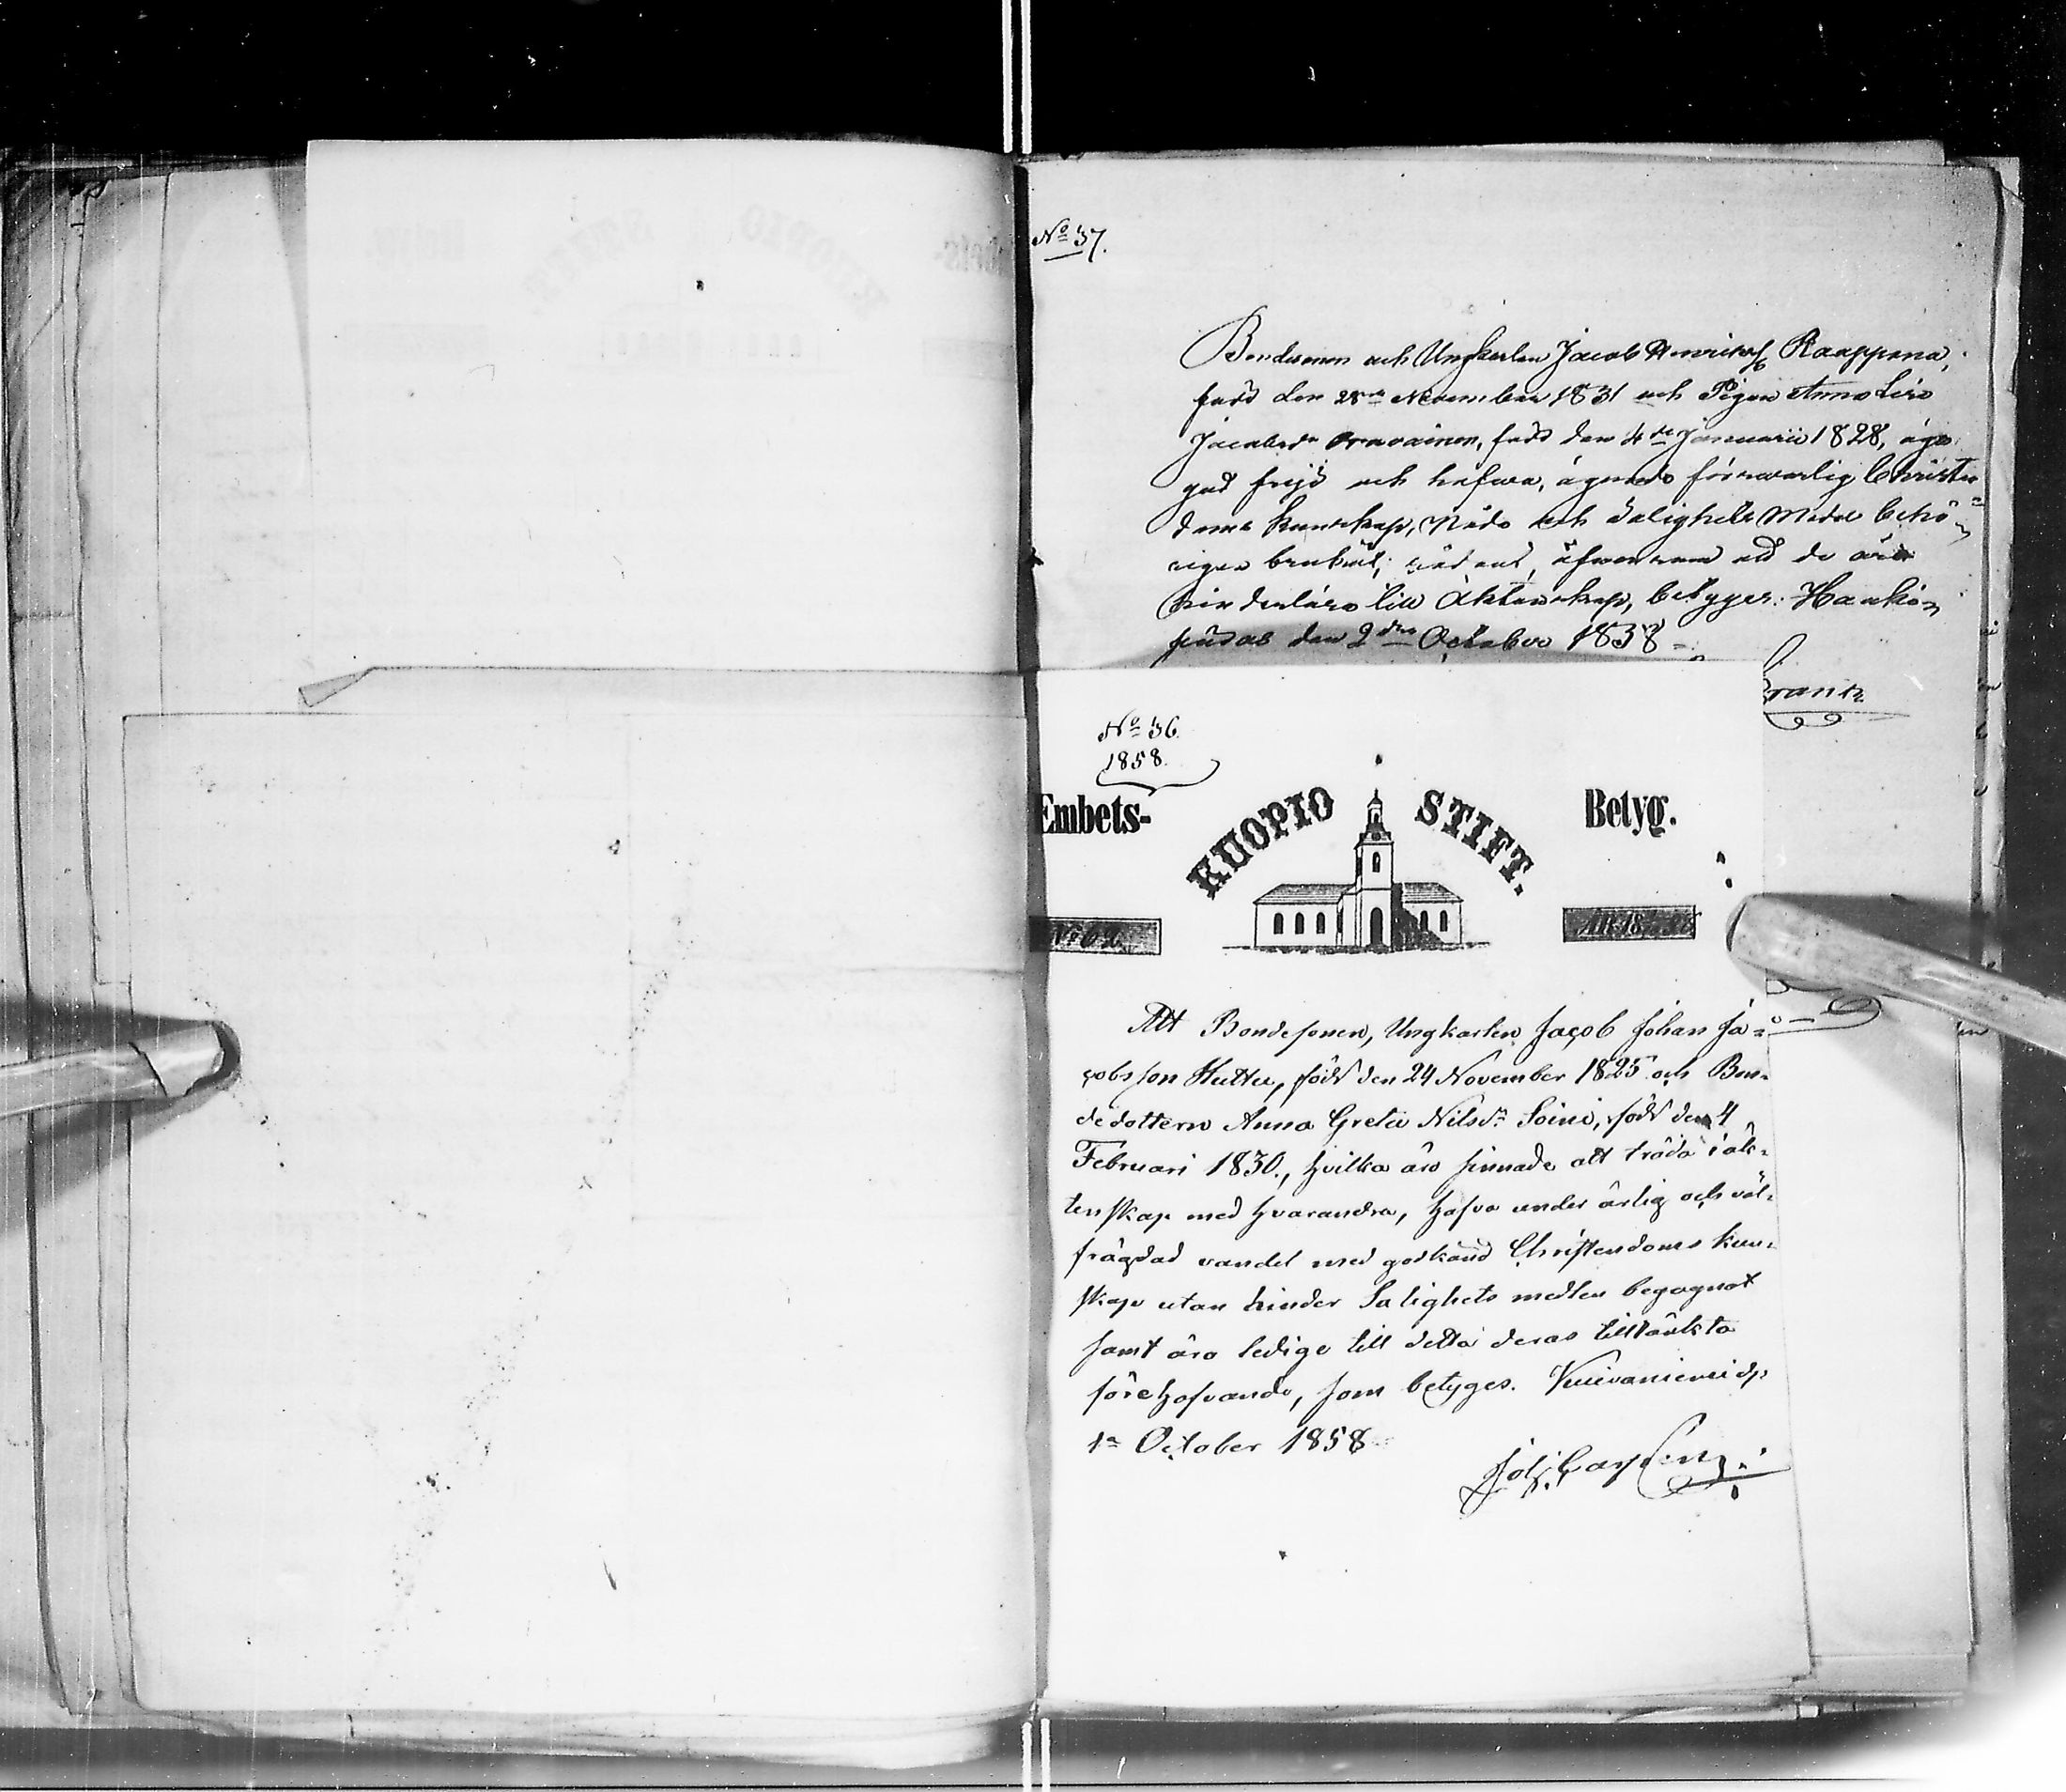 No 37.
Bondsonen och Ungkarlen Jacob Henricss. Raappana,
född den 28de November 1831 och Pigan Anna Lisa
Jacobsdr Oravainen, född den 4de Januarii 1828, äga
god frejd och hafva, ägande försvarlig Christen=
doms kunskap, Nåde och Salighets Medel behö=
rigen brukat; äfvensom att de äro
hinderlöse till Äktenskap, betyges. Haukiu=
pudas den 2dra October 1858 =
Frantz
No 36.
1858.
Embets-
KUOPIO STIFT.
Betyg.
No 62
ÅR 1858
Att Bondesonen, Ungkarlen Jacob Johan Ja=
cobsson Hutta, född den 24 November 1825 och Bon=
dedottern Anna Greta Nilsdr Soini, född den 4
Februari 1830., hvilka äro sinnade att träda i äk=
tenskap med hvarandra, hafva under ärlig och väl=
frägdad vandel med godkänd Christendoms kun=
skap utan hinder Salighets medlen begagnat
samt äro ledige till detta deras tilltänkta
förehafvande, som betyges. Kuivaniemi d.
1a October 1858
Joh: